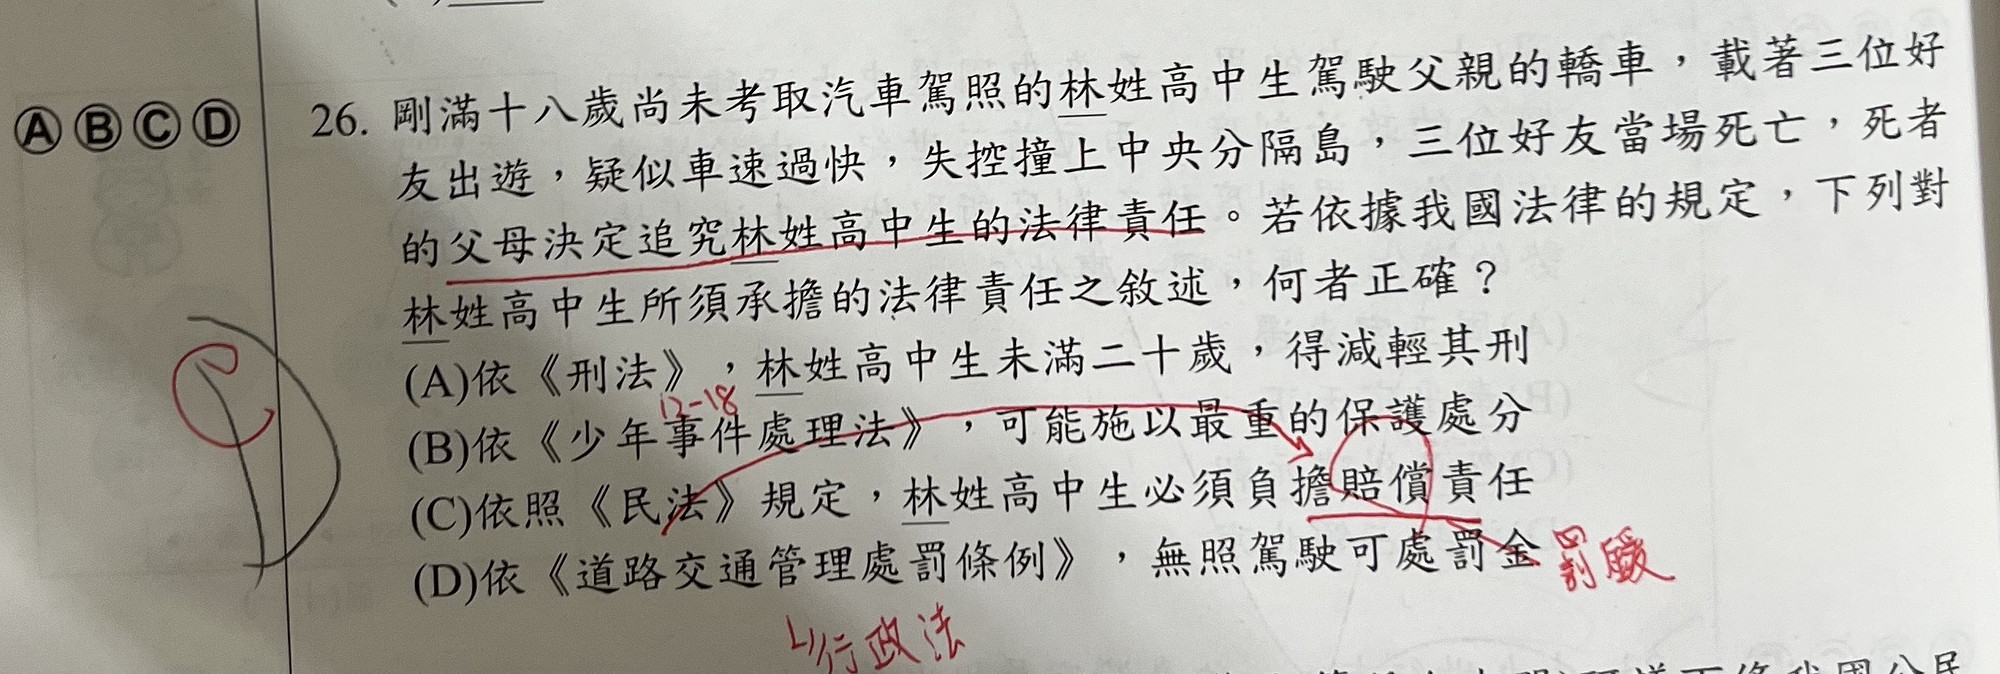 Ⓐ Ⓑ Ⓒ Ⓓ 26. 剛滿十八歲尚未考取汽車駕照的林姓高中生駕駛父親的轎車，載著三位好
友出遊，疑似車速過快，失控撞上中央分隔島，三位好友當場死亡，死者
的父母決定追究林姓高中生的法律責任。若依據我國法律的規定，下列對
林姓高中生所須承擔的法律責任之敘述，何者正確？
(A)依《刑法》，林姓高中生未滿二十歲，得減輕其刑
12-18
(B)依《少年事件處理法》，可能施以最重的保護處分
C D
(C)依照《民法》規定，林姓高中生必須負擔賠償責任
(D)依《道路交通管理處罰條例》，無照駕駛可處罰金 罰鍰
行政法